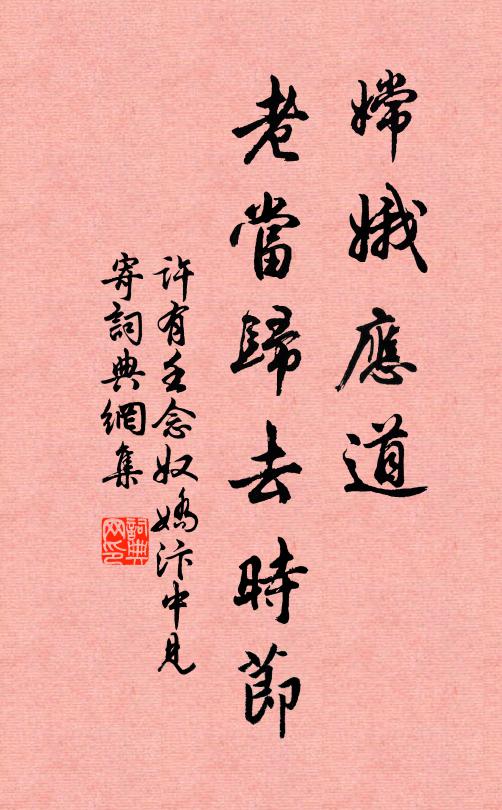 嫦娥應道
老當歸去時節
許有壬念奴嬌汴中見
寄詞典網集
詞典
网印